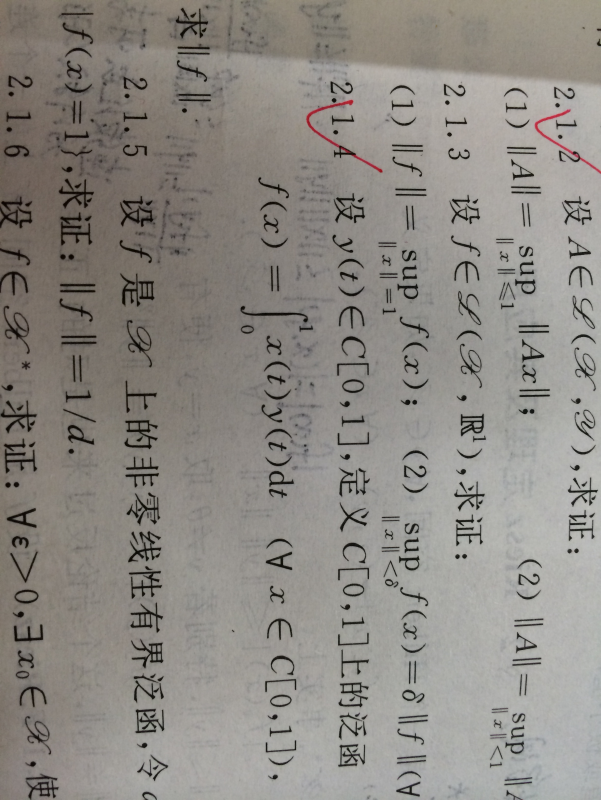 2.1.2 设 A∈ℒ(𝒳,𝒴),求证:
(1) ‖A‖= sup‖x‖≤1 ‖Ax‖; (2) ‖A‖= sup‖x‖<1 ‖A
2.1.3 设 f∈ℒ(𝒳,ℝ¹),求证:
(1) ‖f‖= sup‖x‖=1 f(x); (2) sup‖x‖<δ f(x)=δ‖f‖(∀
2.1.4 设 y(t)∈C[0,1],定义 C[0,1]上的泛函
f(x) = ∫₀¹ x(t)y(t)dt (∀ x∈C[0,1]),
求‖f‖.
2.1.5 设 f 是 𝒳 上的非零线性有界泛函,令
|f(x)=1},求证:‖f‖=1/d.
2.1.6 设 f∈𝒳*,求证:∀ε>0,∃x₀∈𝒳,使